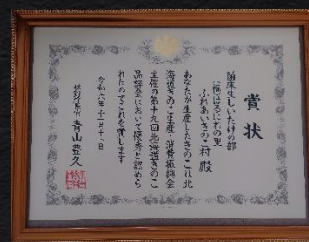 賞状
菌床生しいたけの部
ふれあいきのこ村 殿
あなたが生産したきのこは北
海道きのこ生産・消費振興会
主催の第十九回北海道きのこ
品評会において優秀と認めら
れたのでこれを賞します
令和六年十二月十八日
青山豊久